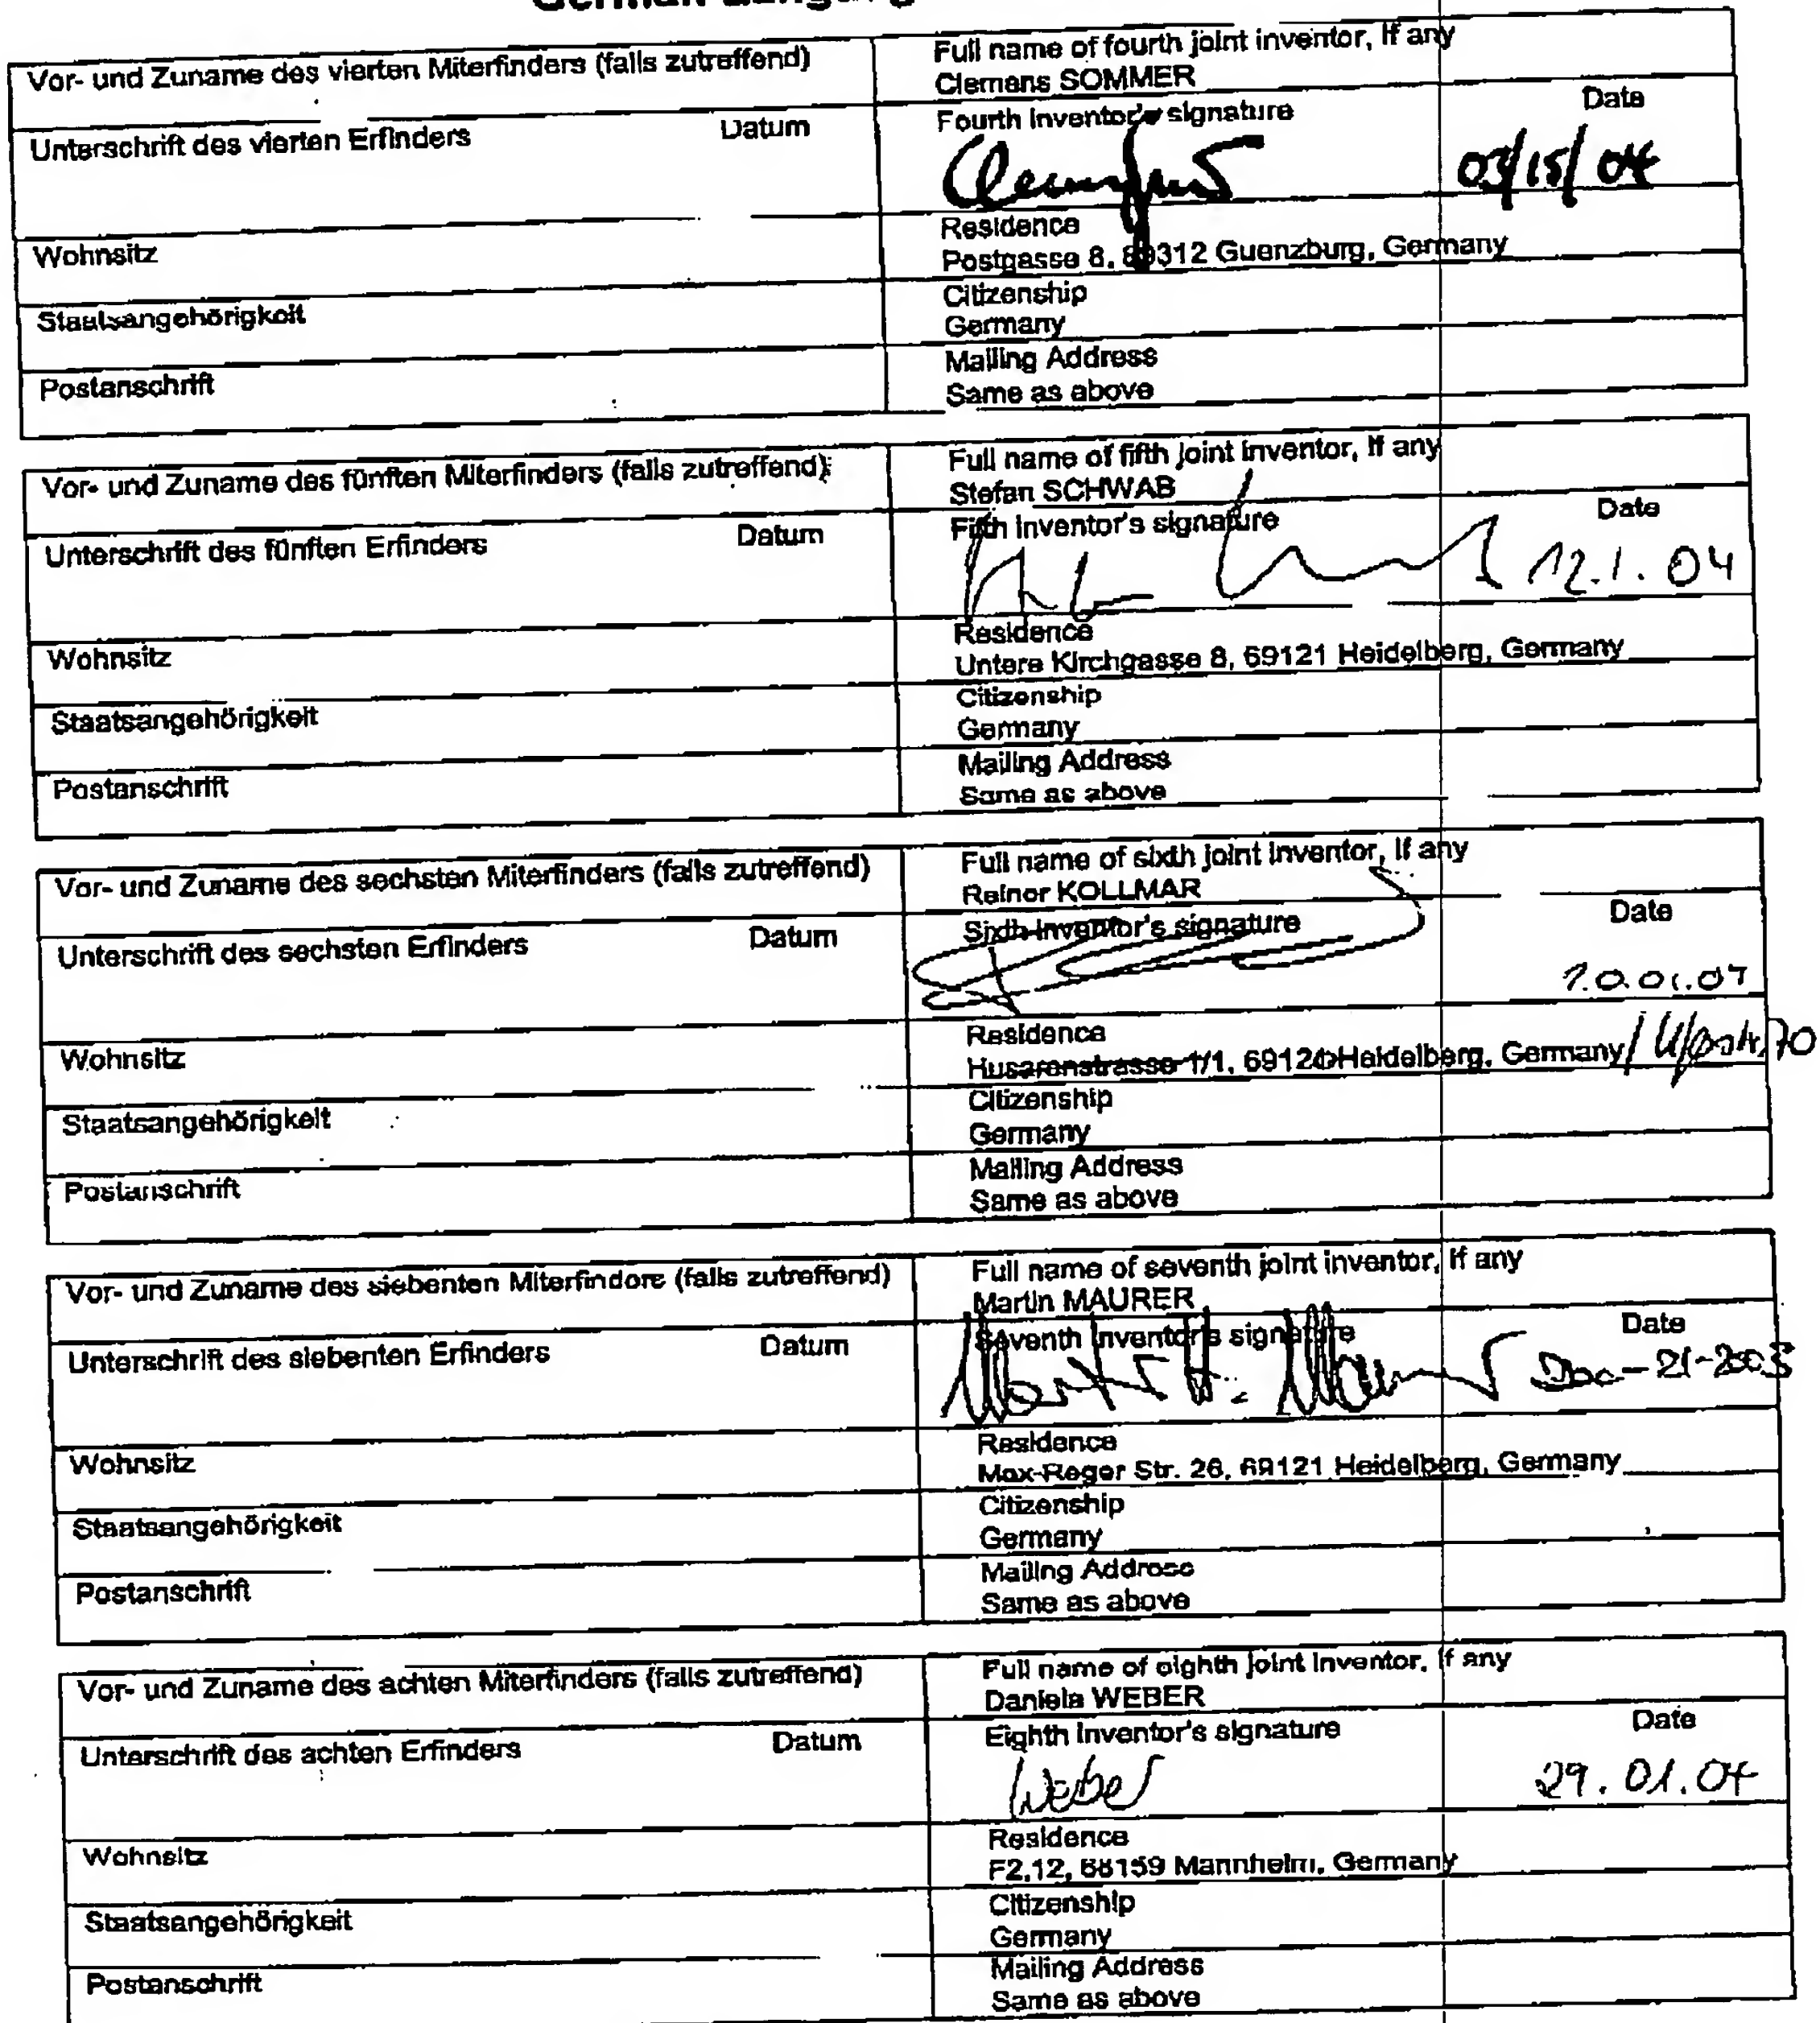 Vor- und Zuname des vierten Miterfinders (falls zutreffend)
Full name of fourth joint inventor, if any
Clemens SOMMER
Unterschrift des vierten Erfinders Datum
Fourth inventor's signature Date
03/15/04
Wohnsitz
Residence
Postgasse 8, 89312 Guenzburg, Germany
Staatsangehörigkeit
Citizenship
Germany
Postanschrift
Mailing Address
Same as above
Vor- und Zuname des fünften Miterfinders (falls zutreffend)
Full name of fifth joint inventor, if any
Stefan SCHWAB
Unterschrift des fünften Erfinders Datum
Fifth inventor's signature Date
12.1.04
Wohnsitz
Residence
Untere Kirchgasse 8, 69121 Heidelberg, Germany
Staatsangehörigkeit
Citizenship
Germany
Postanschrift
Mailing Address
Same as above
Vor- und Zuname des sechsten Miterfinders (falls zutreffend)
Full name of sixth joint inventor, if any
Reiner KOLLMAR
Unterschrift des sechsten Erfinders Datum
Sixth inventor's signature Date
Wohnsitz
Residence
Husarenstrasse 1/1, 69120 Heidelberg, Germany
Staatsangehörigkeit
Citizenship
Germany
Postanschrift
Mailing Address
Same as above
Vor- und Zuname des siebenten Miterfinders (falls zutreffend)
Full name of seventh joint inventor, if any
Martin MAURER
Unterschrift des siebenten Erfinders Datum
Seventh inventor's signature Date
Martin H. Maurer Dec-21-2003
Wohnsitz
Residence
Max-Reger Str. 26, 69121 Heidelberg, Germany
Staatsangehörigkeit
Citizenship
Germany
Postanschrift
Mailing Address
Same as above
Vor- und Zuname des achten Miterfinders (falls zutreffend)
Full name of eighth joint inventor, if any
Daniela WEBER
Unterschrift des achten Erfinders Datum
Eighth inventor's signature Date
Weber 29.01.04
Wohnsitz
Residence
F2,12, 68159 Mannheim, Germany
Staatsangehörigkeit
Citizenship
Germany
Postanschrift
Mailing Address
Same as above